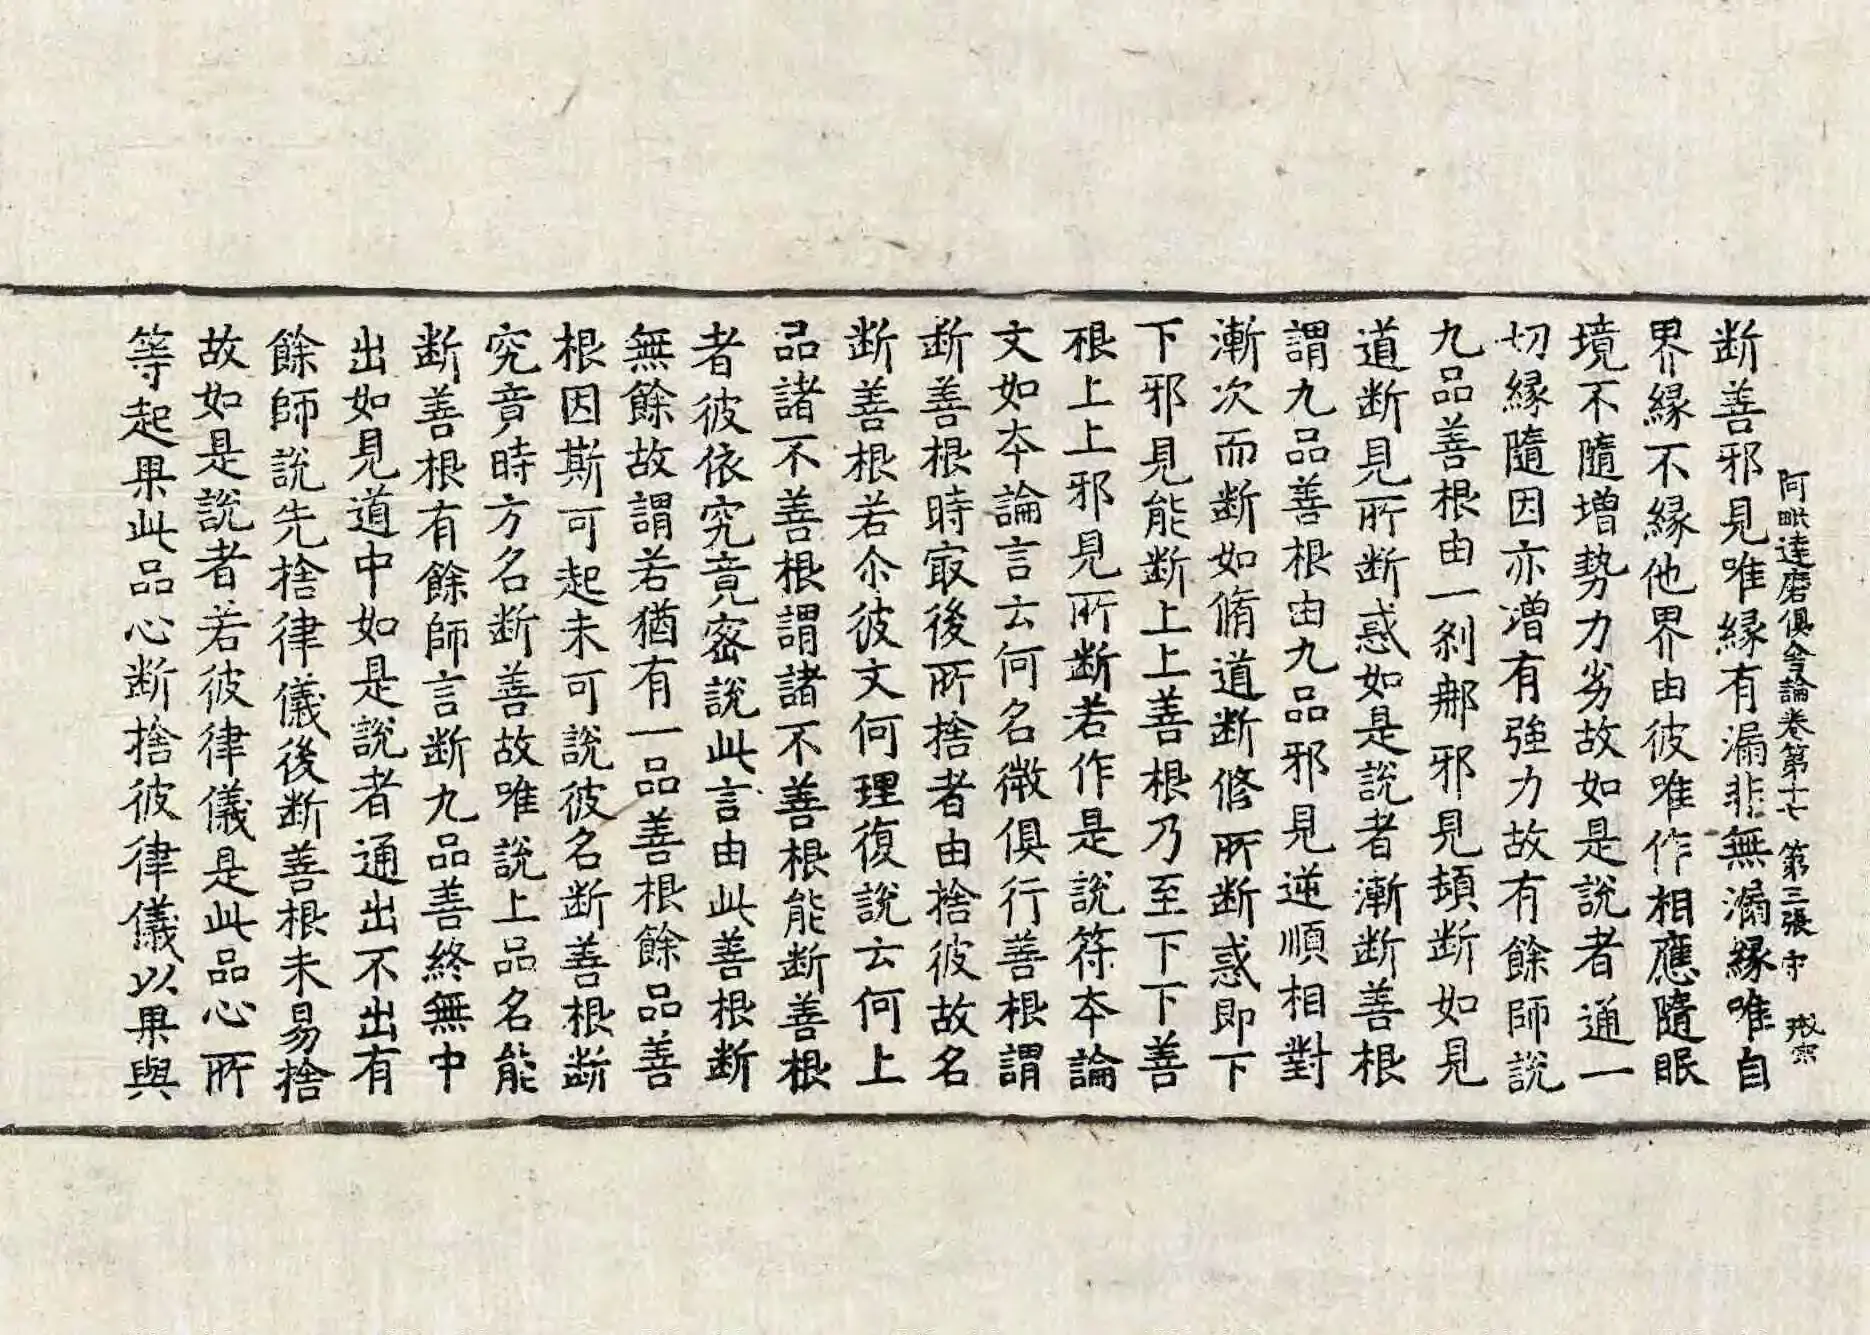 阿毗達磨俱舍論卷第十七 第三張 守
断善邪見唯縁有漏非無漏縁唯自
界縁不縁他界由彼唯作相應隨眠
境不隨增勢力劣故如是說者通一
切縁隨因亦增有強力故有餘師說
九品善根由一剎那邪見頓断如見
道断見所断惑如是說者漸断善根
謂九品善根由九品邪見逆順相對
漸次而断如脩道断修所断惑即下
下邪見能断上上善根乃至下下善
根上上邪見所断若作是說符本論
文如本論言云何名微俱行善根謂
断善根時冣後所捨者由捨彼故名
断善根若尒彼文何理復說云何上
品諸不善根謂諸不善根能断善根
者彼依究竟密說此言由此善根断
無餘故謂若猶有一品善根餘品善
根因斯可起未可說彼名断善根断
究竟時方名断善故唯說上品名能
断善根有餘師言断九品善終無中
出如見道中如是說者通出不出有
餘師說先捨律儀後断善根未易捨
故如是說者若彼律儀是此品心所
等起果此品心断捨彼律儀以果與